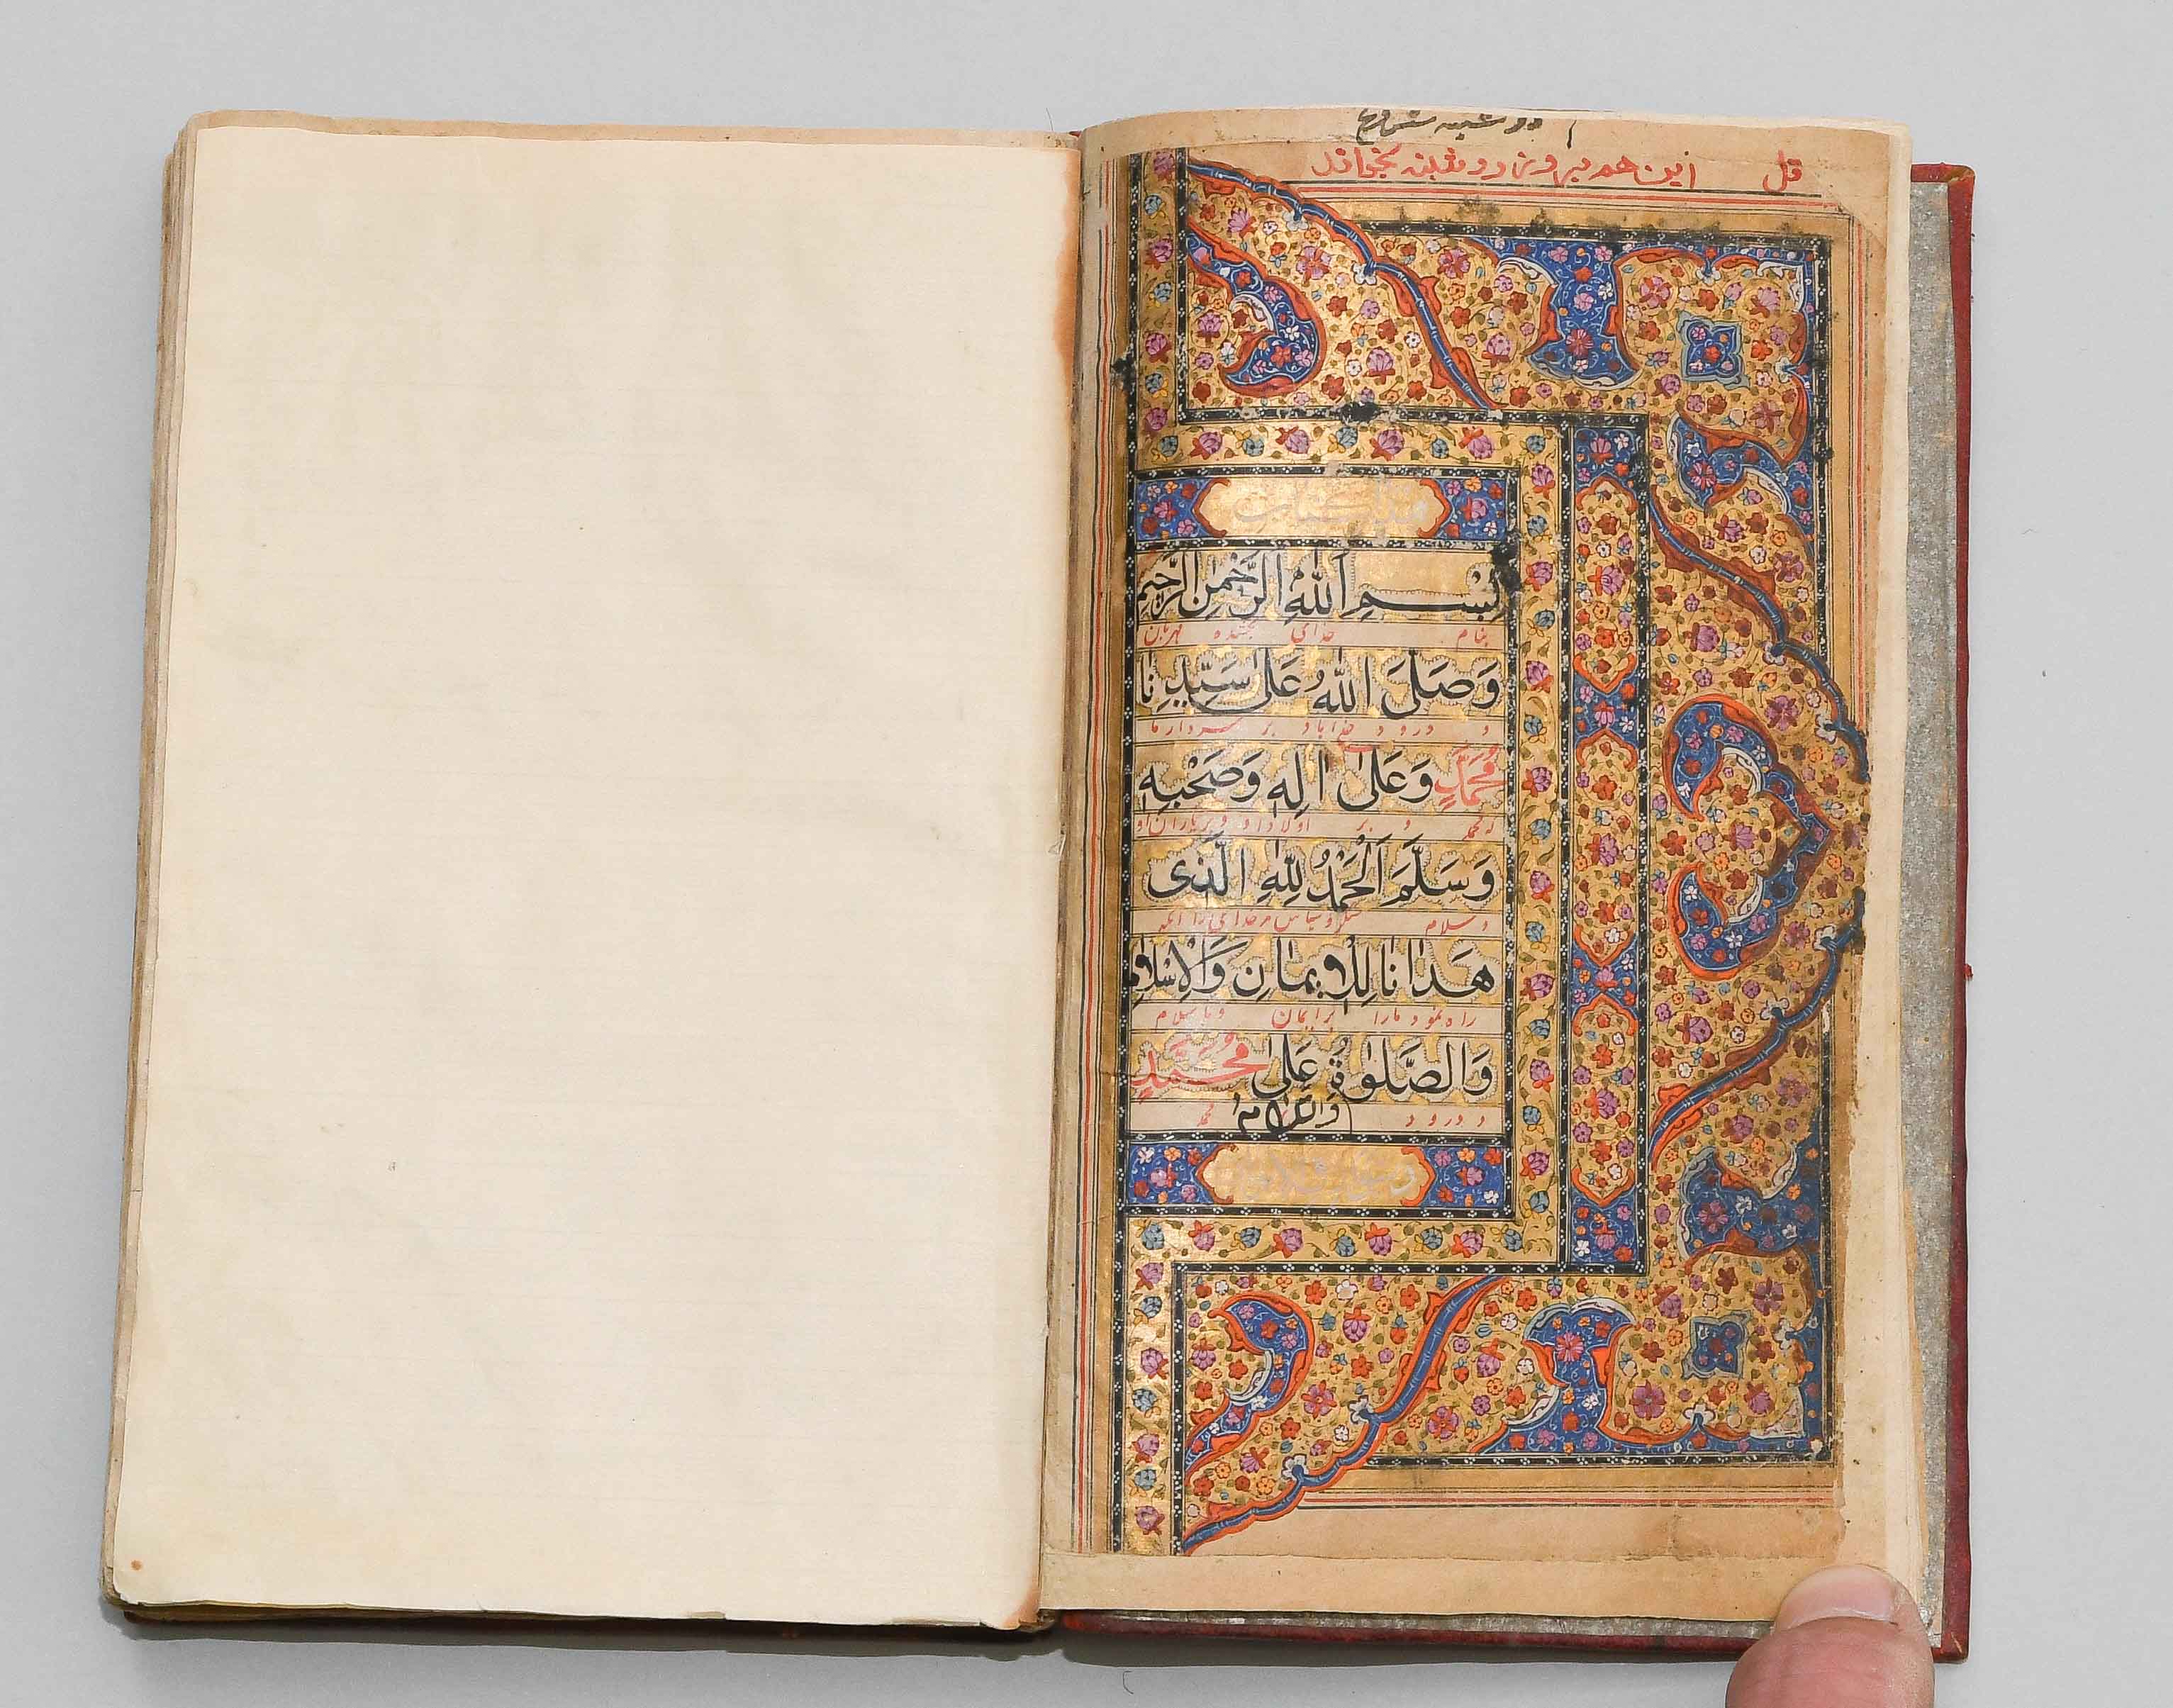 دوشنبه شروع
قل این هم بروز دوشنبه بخواند
هذا کتاب
بِسْمِ اللهِ الرَّحْمٰنِ الرَّحِيمِ
بنام خدای بخشنده مهربان
وَصَلَّی اللهُ عَلٰی سَيِّدِنَا
و درود خدا باد بر سردار ما
مُحَمَّدٍ وَعَلٰی اٰلِهٖ وَصَحْبِهٖ
که محمد و بر اولاد او و بر یاران او
وَسَلَّمَ اَلْحَمْدُ لِلّٰهِ الَّذِی
و سلام شکر و سپاس مر خدای را آنکه
هَدَانَا لِلْاِيمَانِ وَالْاِسْلَامِ
راه نمود مارا بر ایمان و باسلام
وَالصَّلٰوةُ عَلٰی مُحَمَّدٍ
و درود والسلام محمد